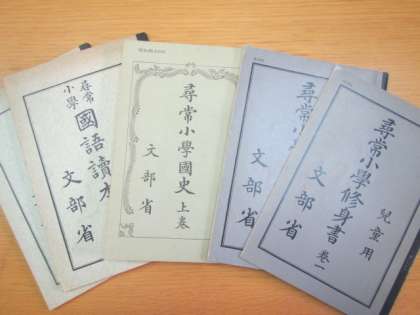 尋常
小學
國語讀本
文部省
尋常小學國史 上卷
文部省
尋常小
文部省
尋常小學修身書 卷一
兒童用
文部省